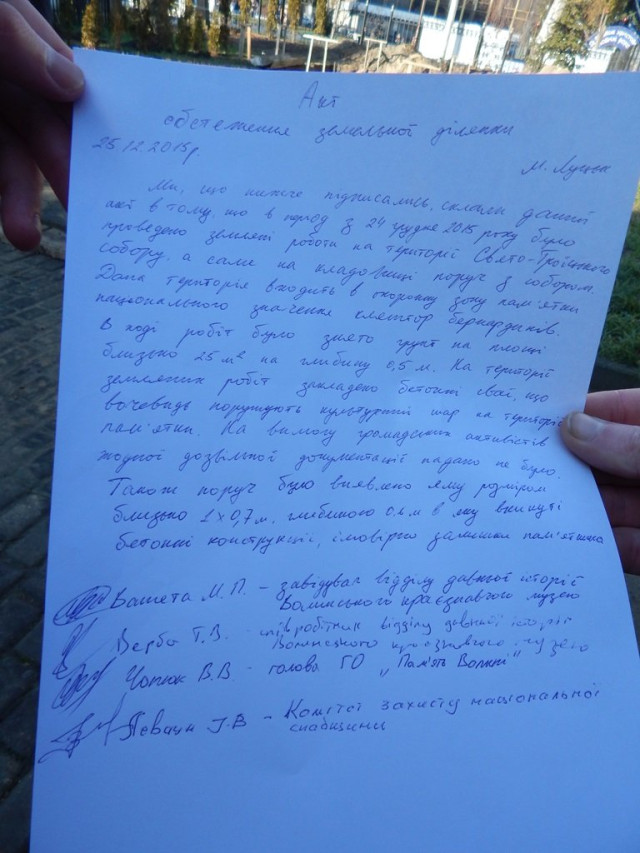 Акт
обстеження земельної ділянки
25.12.2015р.
м. Луцьк
Ми, що нижче підписались, склали даний
акт в тому, що в період з 24 грудня 2015 року було
проведено земляні роботи на території Свято-Троїцького
собору, а саме на кладовищі поруч з собором.
Дана територія входить в охоронну зону пам'ятки
національного значення кляштор бернардинів.
В ході робіт було знято грунт на площі
близько 25 м² на глибину 0,5 м. На території
земляних робіт закладено бетонні сваї, що
вочевидь порушують культурний шар на території
пам'ятки. На вимогу громадських активістів
жодної дозвільної документації надано не було.
Також поруч було виявлено яму розміром
близько 1 х 0,7 м, глибиною м в яку вкинуті
бетонні конструкції, імовірно залишки пам'ятника
М.П. – завідувач відділу давньої історії
Волинського краєзнавчого музею
Верба Т.В. – співробітник відділу давньої історії
Волинського краєзнавчого музею
В.В – голова ГО „Пам'ять Волині"
І.В – Комітет захисту національної
спадщини